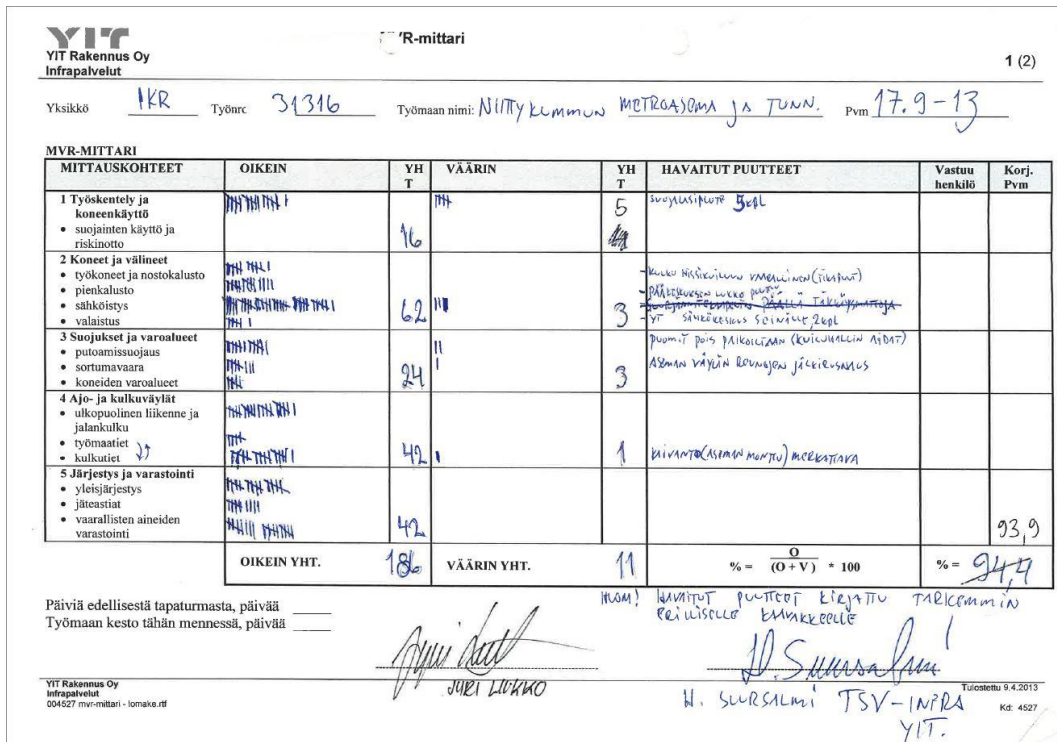 YIT
YIT Rakennus Oy
Infrapalvelut
VR-mittari
1 (2)
Yksikkö IKR Työnrc 31316 Työmaan nimi: NIITTYKUMMUN METROASEMA JA TUNN. Pvm 17.9-13
MVR-MITTARI
MITTAUSKOHTEET OIKEIN YHT VÄÄRIN YHT HAVAITUT PUUTTEET Vastuu henkilö Korj. Pvm
1 Työskentely ja koneenkäyttö
• suojainten käyttö ja riskinotto
16
5
SUOJAUSPUUTE 5kpl
2 Koneet ja välineet
• työkoneet ja nostokalusto
• pienkalusto
• sähköistys
• valaistus
62
3
- KULKU HISSIKUILUUN VAARALLINEN (TIKAPUUT)
- PÄÄKESKUKSEN LUKKO PUUTTUU
- YT SÄHKÖKESKUS SEINÄLLE, 2kpl
3 Suojukset ja varoalueet
• putoamissuojaus
• sortumavaara
• koneiden varoalueet
24
3
PUOMIT POIS PAIKOILTAAN (KUILUHALLIN AIDAT)
ASEMAN VÄYLÄN REUNOJEN JÄLKIRUSNAUS
4 Ajo- ja kulkuväylät
• ulkopuolinen liikenne ja jalankulku
• työmaatiet
• kulkutiet
42
1
KAIVANTO (ASEMAN MONTTU) MERKATTAVA
5 Järjestys ja varastointi
• yleisjärjestys
• jäteastiat
• vaarallisten aineiden varastointi
42
93,9
OIKEIN YHT. 186 VÄÄRIN YHT. 11 % = O / (O + V) * 100 % = 94,4
Päiviä edellisestä tapaturmasta, päivää
Työmaan kesto tähän mennessä, päivää
HUOM! HAVAITUT PUUTTEET KIRJATTU TARKEMMIN
ERILLISELLE KAAVAKKEELLE
JYRI LUKKO
H. SUURSALMI TSV-INFRA
YIT.
YIT Rakennus Oy
Infrapalvelut
004527 mvr-mittari - lomake.rtf
Tulostettu 9.4.2013
Kd: 4527